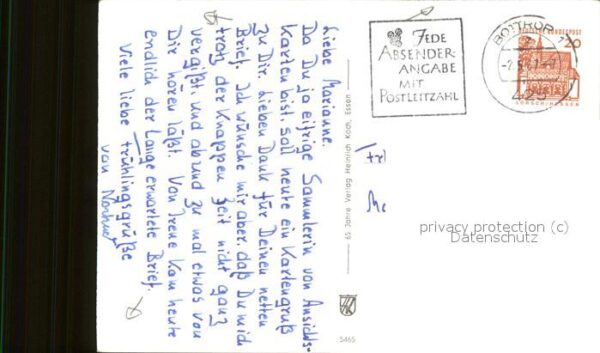 Liebe Marianne.
Da Du ja eifrige Sammlerin von Ansichts-
Karten bist, soll heute ein Kartengruß
zu Dir. Lieben Dank für Deinen netten
Brief. Ich wünsche mir aber, daß Du mich
trotz der Knappen Zeit nicht ganz
vergißt, und ab und zu mal etwas von
Dir hören läßt. Von Irene Kam heute
endlich der Lange erwartete Brief.
Viele liebe Frühlingsgrüße
von
65 Jahre Verlag Heinrich Koch, Essen
5465
JEDE
ABSENDER-
ANGABE
MIT
POSTLEITZAHL
BOTTROP
425
DEUTSCHE BUNDESPOST
20
LORSCH/HESSEN
Frl
privacy protection (c)
Datenschutz